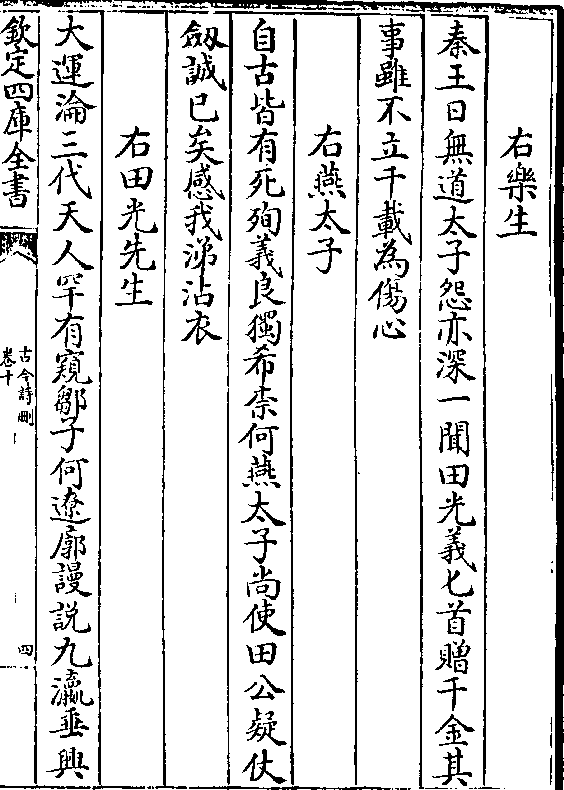 右樂生
秦王日無道太子怨亦深一聞田光義匕首贈千金其
事雖不立千載為傷心
右燕太子
自古皆有死殉義良獨希柰何燕太子尚使田公疑伏
劔誠已矣感我涕沾衣
右田光先生
大運淪三代天人罕有窺鄒子何遼廓謾説九瀛垂興
欽定四庫全書
古今詩刪
卷十
四